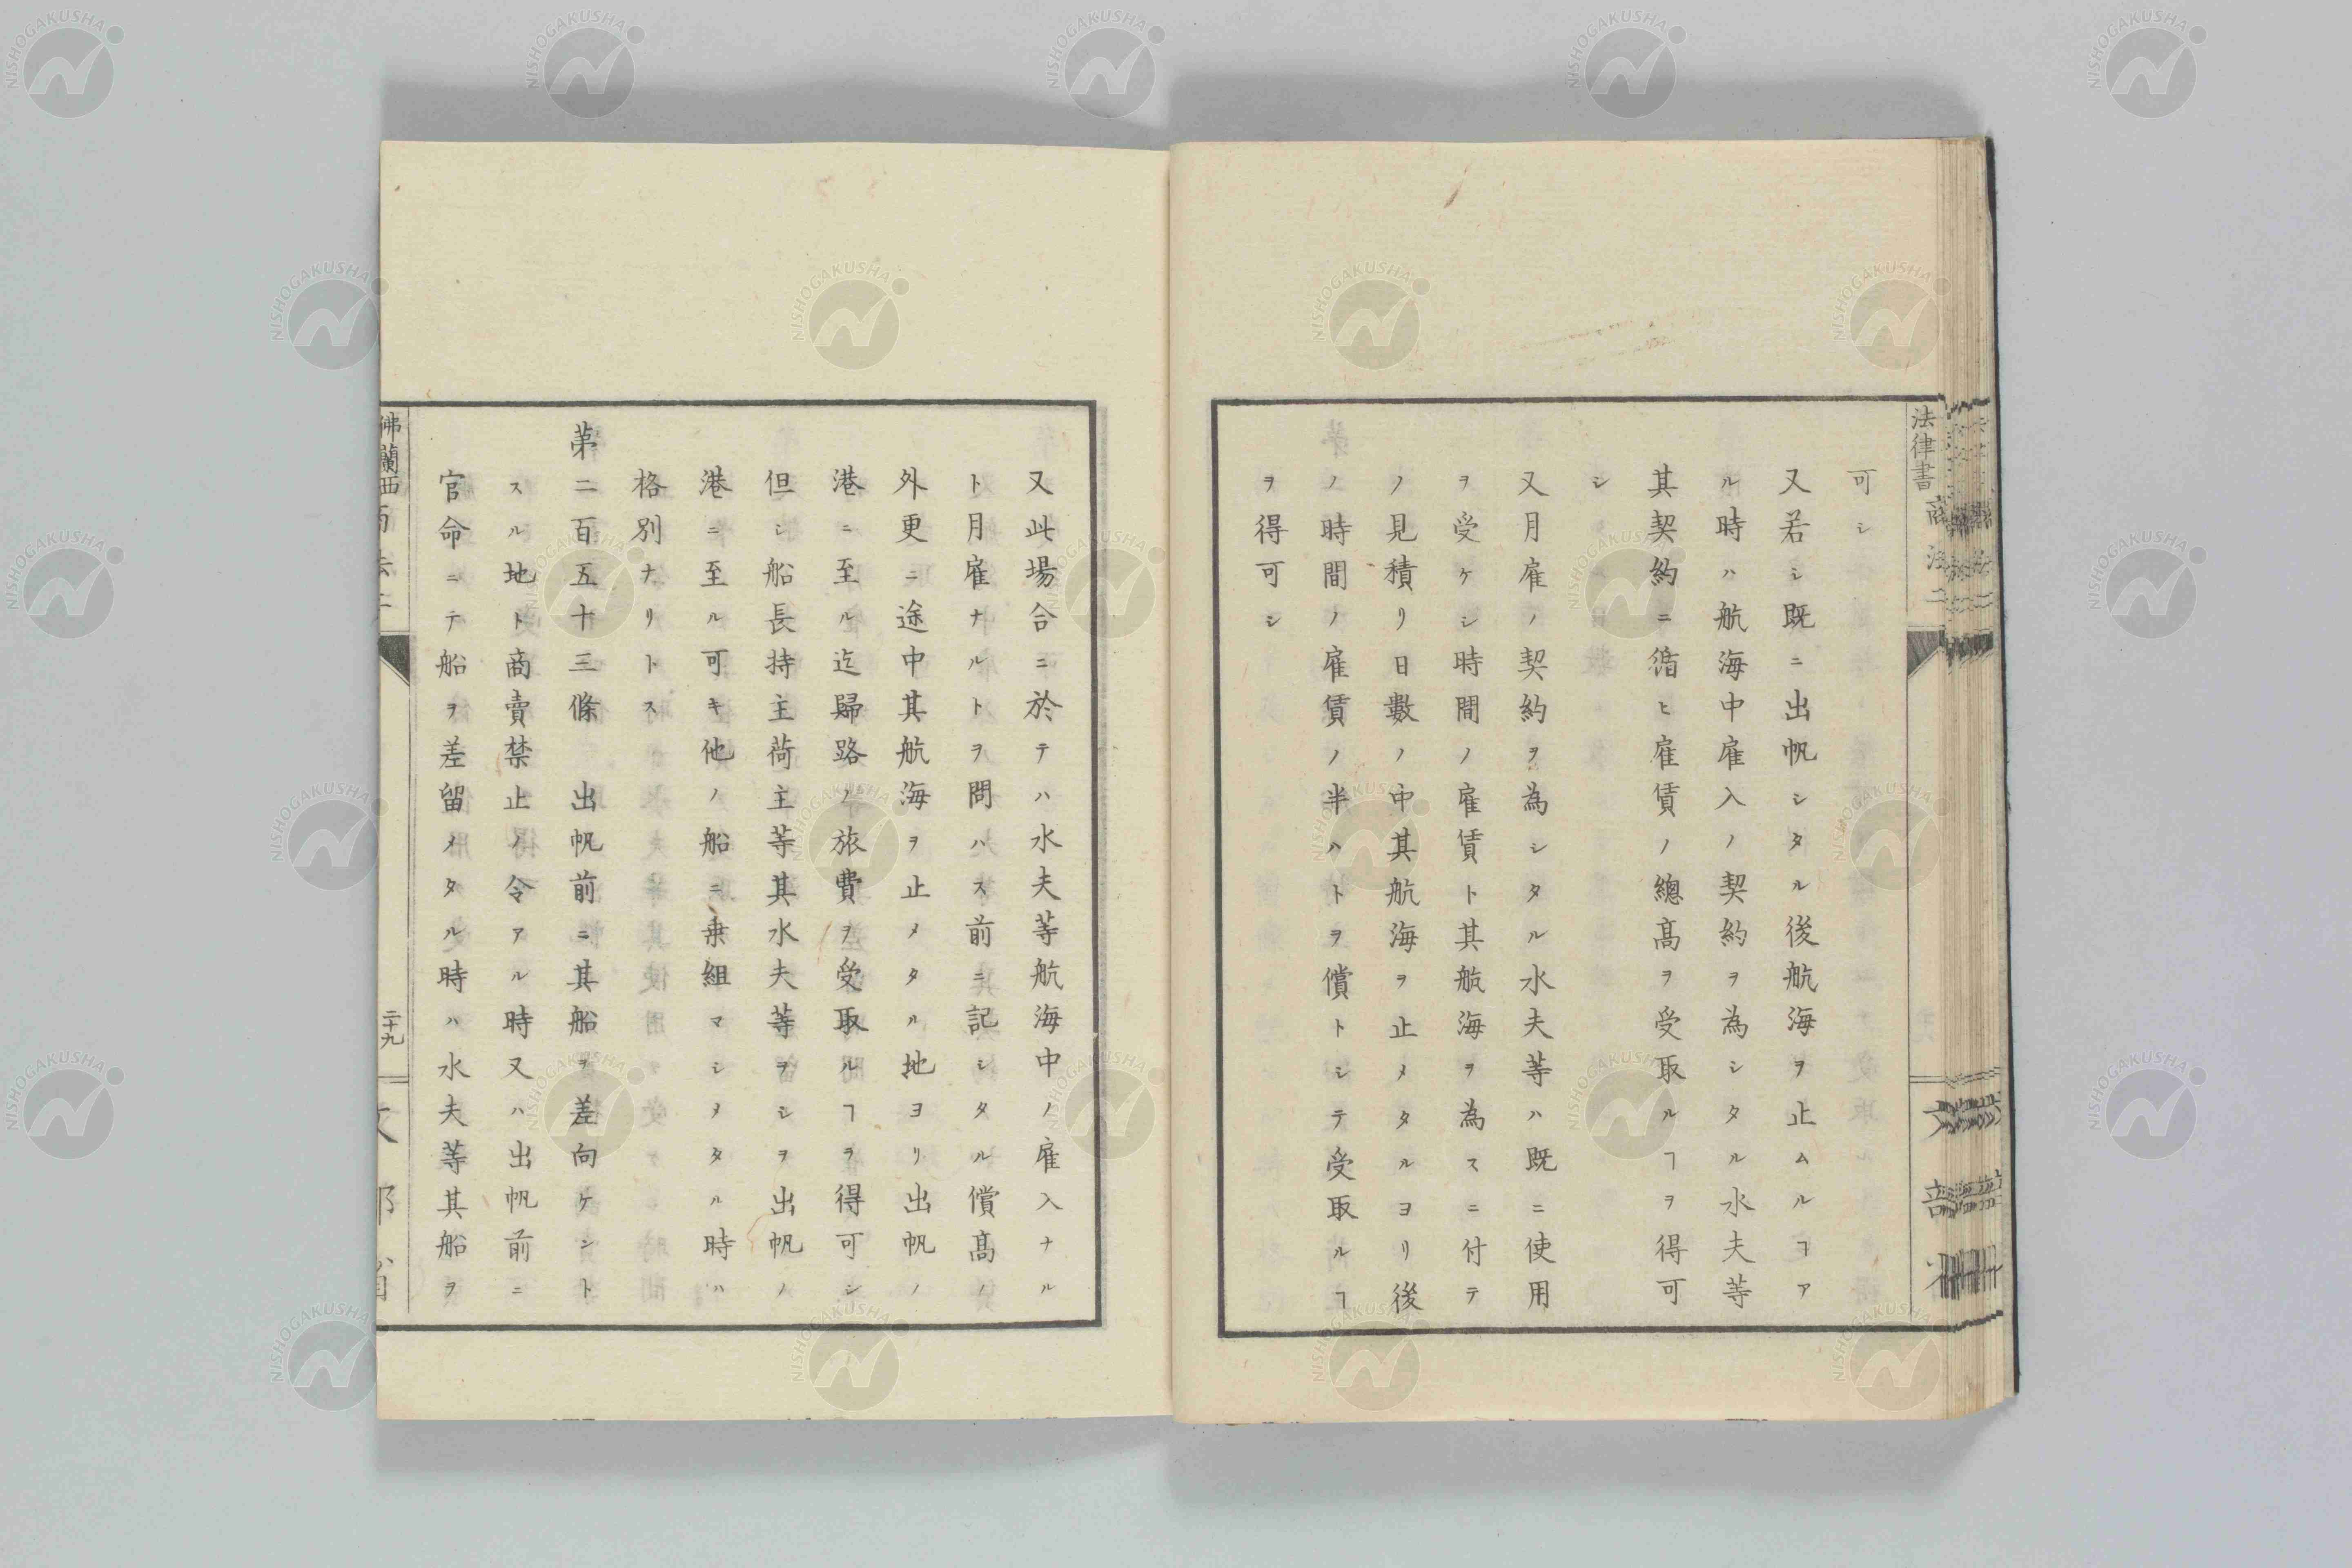 法律書 商法二
可シ
又若シ既ニ出帆シタル後航海ヲ止ムルヿア
ル時ハ航海中雇入ノ契約ヲ為シタル水夫等
其契約ニ循ヒ雇賃ノ總髙ヲ受取ルヿヲ得可
シ
又月雇ノ契約ヲ為シタル水夫等ハ既ニ使用
ヲ受ケシ時間ノ雇賃ト其航海ヲ為スニ付テ
ノ見積リ日數ノ中其航海ヲ止メタルヨリ後
ノ時間ノ雇賃ノ半ハトヲ償トシテ受取ルヿ
ヲ得可シ
又此場合ニ於テハ水夫等航海中ノ雇入ナル
ト月雇ナルトヲ問ハス前ニ記シタル償髙ノ
外更ニ途中其航海ヲ止メタル地ヨリ出帆ノ
港ニ至ル迄歸路ノ旅費ヲ受取ルヿヲ得可シ
但シ船長持主荷主等其水夫等ヲシヲ出帆ノ
港ニ至ル可キ他ノ船ニ乗組マシメタル時ハ
格別ナリトス
第二百五十三條 出帆前ニ其船ヲ差向ケント
スル地ト商賣禁止ノ令アル時又ハ出帆前ニ
官命ニテ船ヲ差留メタル時ハ水夫等其船ヲ
佛蘭西
二十九
NISHOGAKUSHA